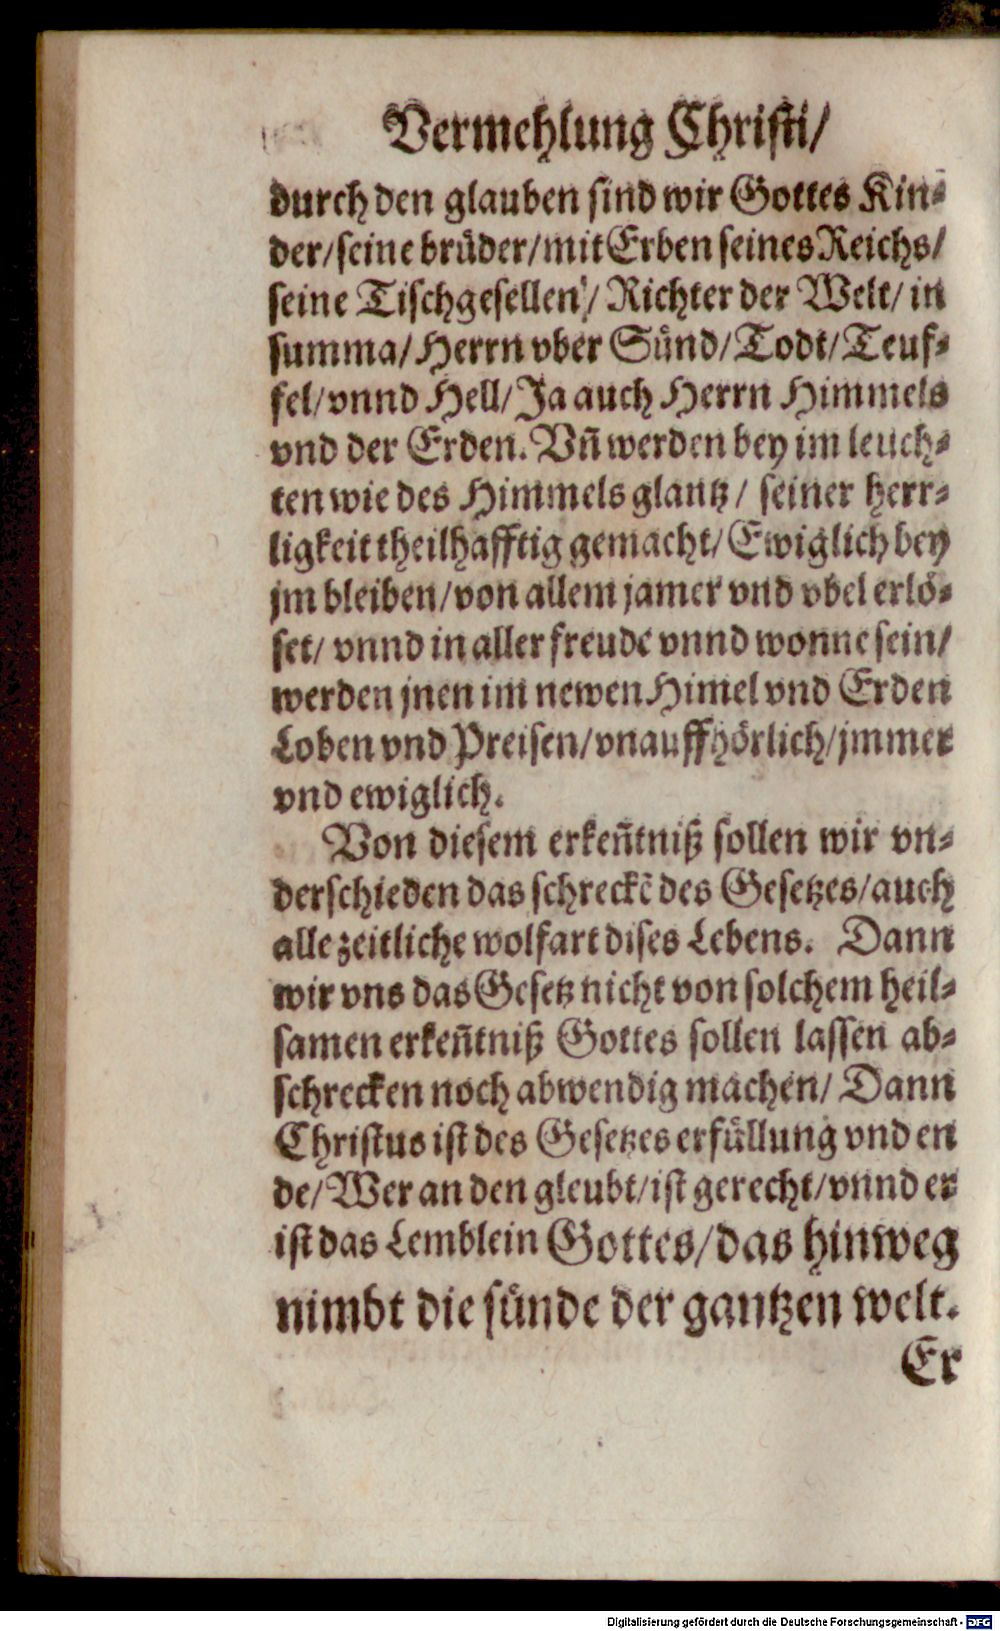 Vermehlung Christi/
durch den glauben sind wir Gottes Kin⸗
der/seine brüder/mit Erben seines Reichs/
seine Tischgesellen/ Richter der Welt/ in
summa/Herrn vber Sünd/Todt/Teuf⸗
fel/vnnd Hell/Ja auch Herrn Himmels
vnd der Erden. Vn̄ werden bey im leuch⸗
ten wie des Himmels glantz/ seiner herr⸗
ligkeit theilhafftig gemacht/Ewiglich bey
jm bleiben/von allem jamer vnd vbel erlö⸗
set/ vnnd in aller freude vnnd wonne sein/
werden jnen im newen Himel vnd Erden
Loben vnd Preisen/vnauffhörlich/jmmer
vnd ewiglich.
Von diesem erken̄tniß sollen wir vn⸗
derschieden das schreckē des Gesetzes/auch
alle zeitliche wolfart dises Lebens. Dann
wir vns das Gesetz nicht von solchem heil⸗
samen erken̄tniß Gottes sollen lassen ab⸗
schrecken noch abwendig machen/ Dann
Christus ist des Gesetzes erfüllung vnd en
de/Wer an den gleubt/ist gerecht/vnnd er
ist das Lemblein Gottes/das hinweg
nimbt die sünde der gantzen welt.
Er
Digitalisierung gefördert durch die Deutsche Forschungsgemeinschaft - DFG